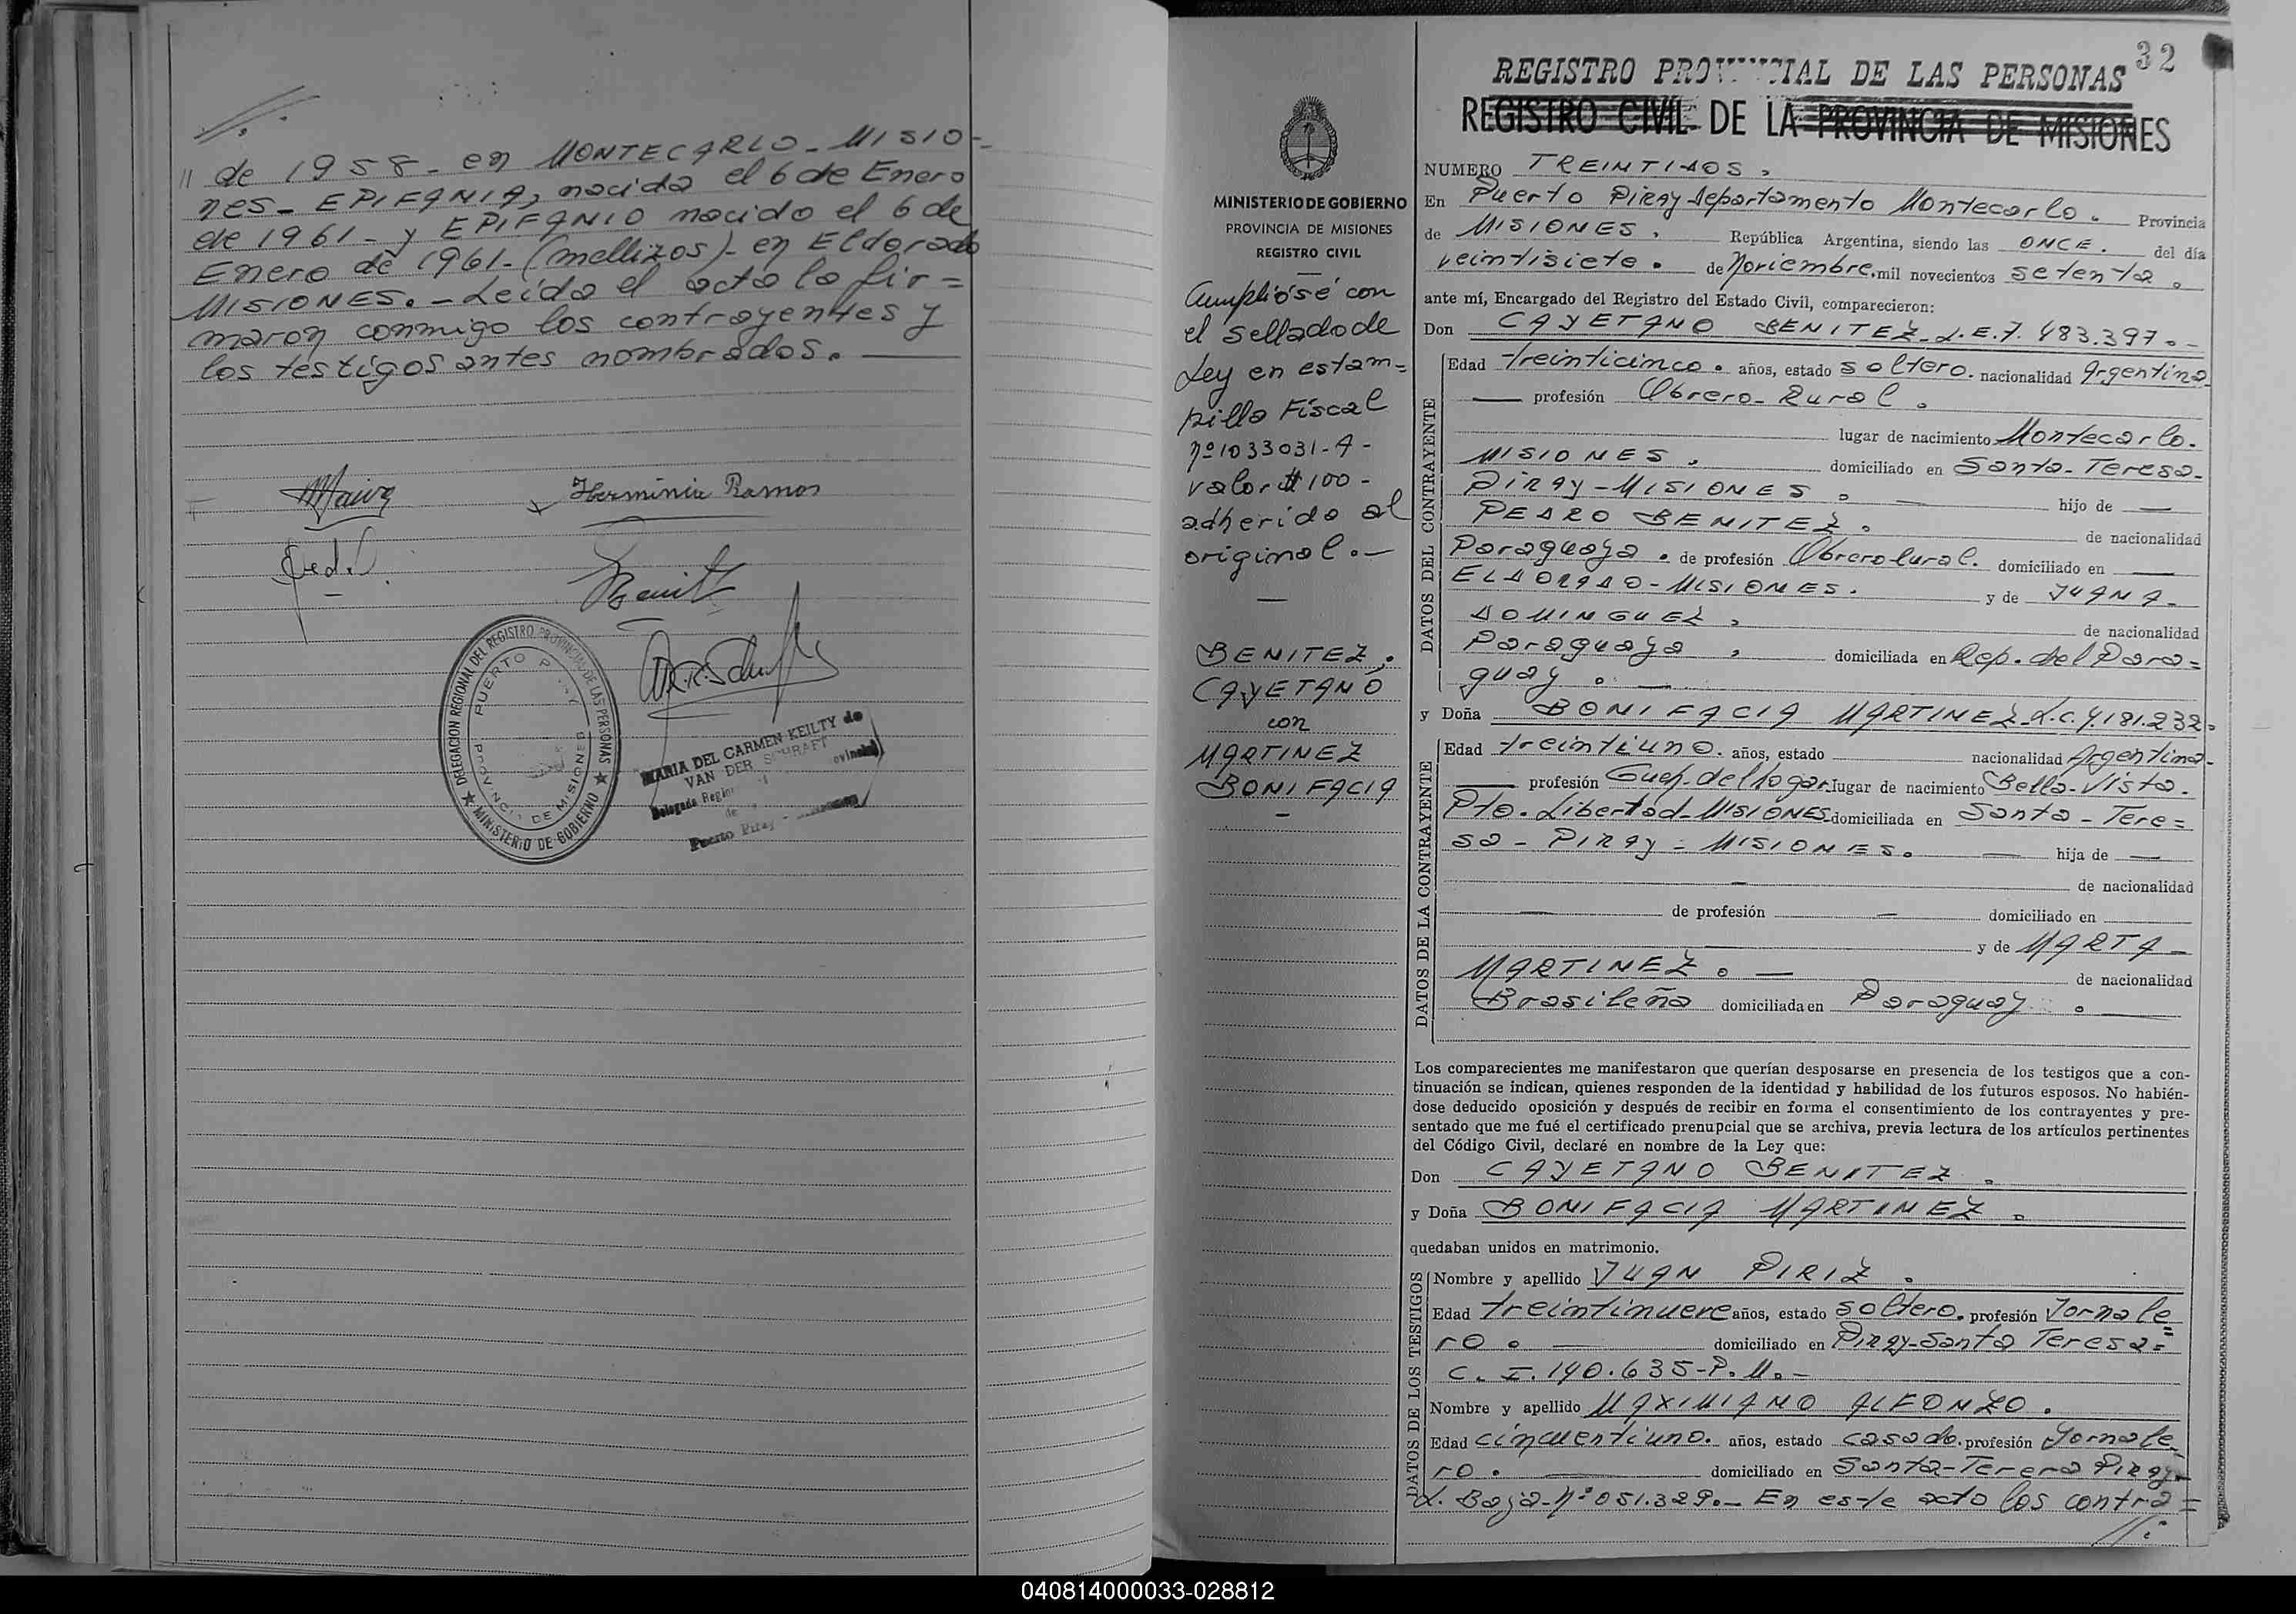 //.
// de 1958 - en MONTECARLO - MISIO-
NES - EPIFANIA, nacida el 6 de Enero
de 1961 - y EPIFANIO nacido el 6 de
Enero de 1961 - (mellizos) - en Eldorado
MISIONES. - Leída el acta la fir=
maron conmigo los contrayentes y
los testigos antes nombrados. —
Herminia Ramos
DELEGACION REGIONAL DEL REGISTRO PROVINCIAL DE LAS PERSONAS
MINISTERIO DE GOBIERNO
PUERTO PIRAY
PROVINCIA DE MISIONES
MARIA DEL CARMEN KEILTY de
VAN DER SCHRAFT
Delegada Regional
de
Puerto Piray -
MINISTERIO DE GOBIERNO
PROVINCIA DE MISIONES
REGISTRO CIVIL
Cumplióse con
el sellado de
Ley en estam=
pilla Fiscal
nº 1033031-A-
valor $ 100-
adherida al
original. —
BENITEZ,
CAYETANO
con
MARTINEZ
BONIFACIA
32
REGISTRO PROVINCIAL DE LAS PERSONAS
REGISTRO CIVIL DE LA PROVINCIA DE MISIONES
NUMERO TREINTIDOS.
En Puerto Piray Departamento Montecarlo. Provincia
de MISIONES. República Argentina, siendo las ONCE. del día
veintisiete. de Noviembre, mil novecientos setenta.
ante mí, Encargado del Registro del Estado Civil, comparecieron:
Don CAYETANO BENITEZ - L.E. 7.483.397. -
DATOS DEL CONTRAYENTE
Edad treinticinco. años, estado soltero. nacionalidad Argentina
— profesión Obrero - Rural.
lugar de nacimiento Montecarlo.
MISIONES. domiciliado en Santa - Teresa -
PIRAY - MISIONES. — hijo de —
PEDRO BENITEZ. de nacionalidad
Paraguaya. de profesión Obrero Rural. domiciliado en —
ELDORADO - MISIONES. y de JUANA -
DOMINGUEZ, de nacionalidad
Paraguaya, domiciliada en Rep. del Para=
guay. —
y Doña BONIFACIA MARTINEZ - L.C. 4.181.232.
DATOS DE LA CONTRAYENTE
Edad treintiuno. años, estado nacionalidad Argentina -
— profesión Queh. del hogar. lugar de nacimiento Bella - Vista -
Pto. Libertad - MISIONES - domiciliada en Santa - Tere=
sa - PIRAY - MISIONES. — hija de —
— de nacionalidad
— de profesión — domiciliado en
— y de MARTA -
MARTINEZ. — de nacionalidad
Brasileña domiciliada en Paraguay. —
Los comparecientes me manifestaron que querían desposarse en presencia de los testigos que a con-
tinuación se indican, quienes responden de la identidad y habilidad de los futuros esposos. No habién-
dose deducido oposición y después de recibir en forma el consentimiento de los contrayentes y pre-
sentado que me fué el certificado prenupcial que se archiva, previa lectura de los artículos pertinentes
del Código Civil, declaré en nombre de la Ley que:
Don CAYETANO BENITEZ.
y Doña BONIFACIA MARTINEZ.
quedaban unidos en matrimonio.
DATOS DE LOS TESTIGOS
Nombre y apellido JUAN PIRIZ.
Edad treintinueve años, estado soltero. profesión Jornale=
ro. — domiciliado en Piray - Santa Teresa =
C. I. 140.635 - P. M. -
Nombre y apellido MAXIMIANO ALFONZO.
Edad cincuentiuno. años, estado casado. profesión Jornale
ro. — domiciliado en Santa - Teresa Piray -
L. Baja - nº 051.329. - En este acto los contra=
//.
040814000033-028812